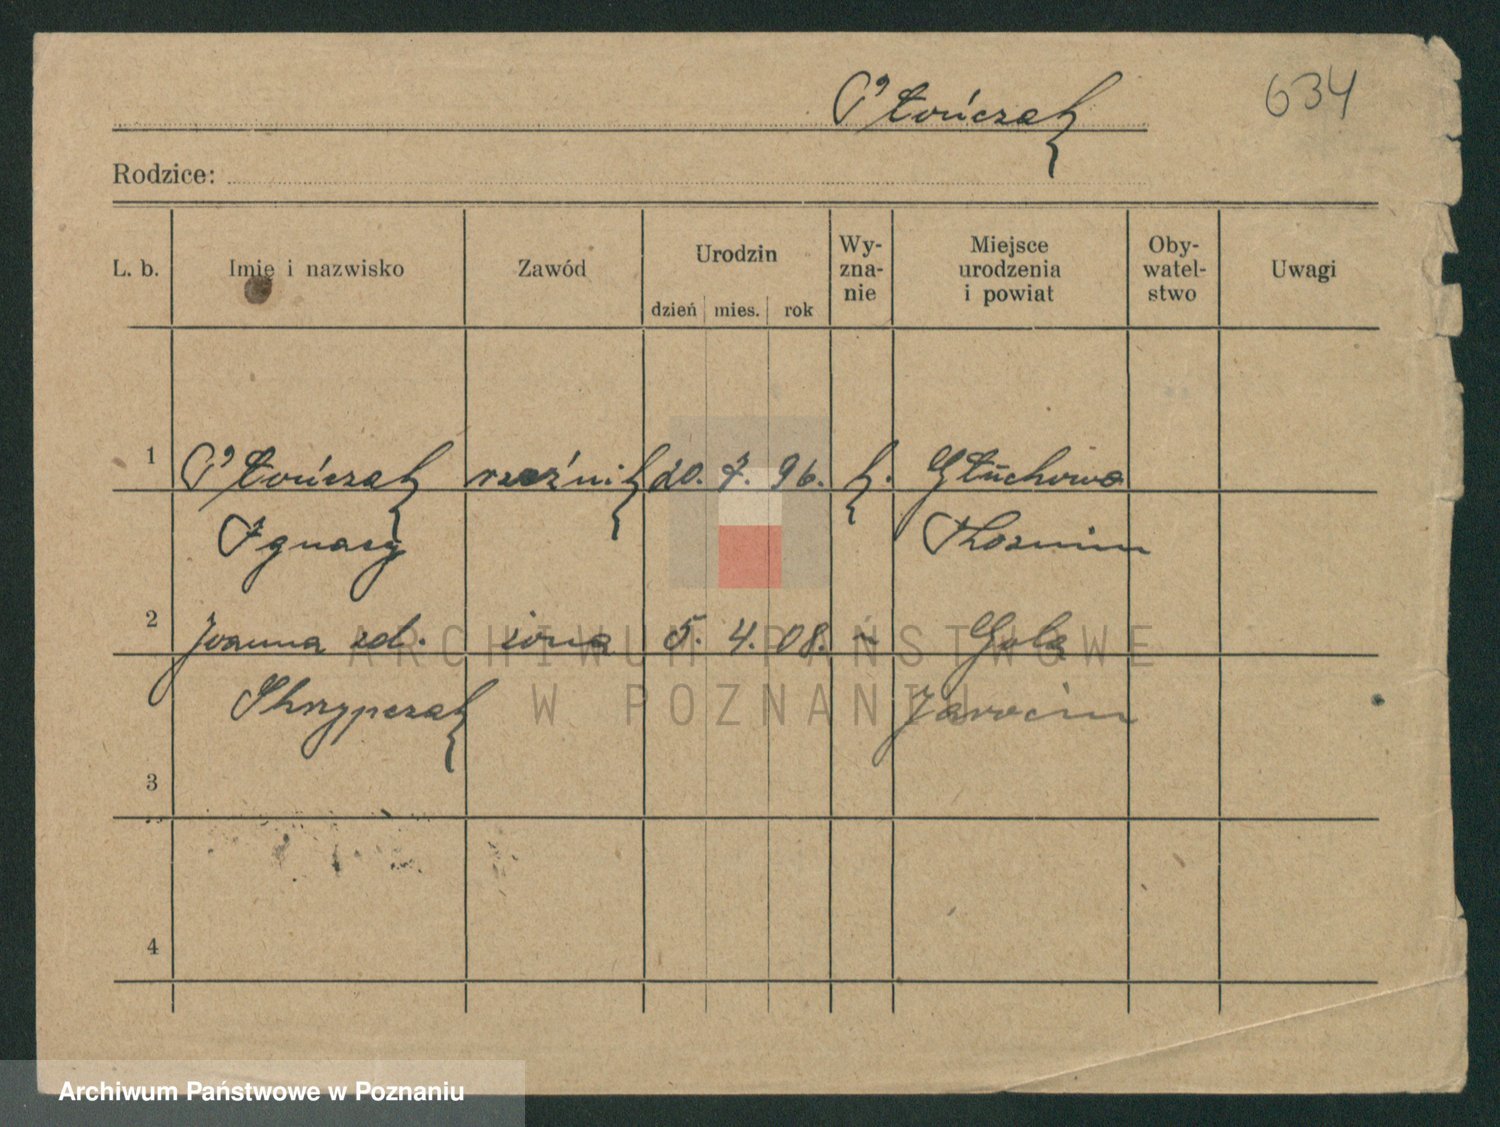 Płończak
634
Rodzice:
L. b. Imię i nazwisko Zawód Urodzin dzień mies. rok Wy-zna-nie Miejsce urodzenia i powiat Oby-watel-stwo Uwagi
1 Płończak rzeźnik 20. 7. 96. k. Głuchowo
Ignacy Koźmin
2 Joanna zd. żona 5. 4. 08. ~ Gola
Skrzypczak Jarocin
3
4
ARCHIWUM PAŃSTWOWE
W POZNANIU
Archiwum Państwowe w Poznaniu